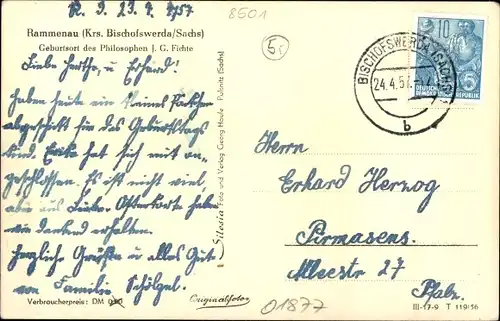 R. d. 23.4.1957
8501
Rammenau (Krs. Bischofswerda/Sachs)
Geburtsort des Philosophen J. G. Fichte
5r
Liebe Hertha, u. Erhard!
haben heute ein kleines Päckchen
abgeschickt für das Geburtstags
kind. Erika hat sich mit an-
geschlossen. Es ist nicht viel,
aber aus Liebe. Osterkarte haben
wir dankend erhalten.
Herzliche Grüße u. alles Gute
von Familie Schölzel.
Verbraucherpreis: DM
Silesia Foto und Verlag Georg Haufe · Pulsnitz (Sachs)
Originalfoto
BISCHOFSWERDA (SACHS)
24.4.57
b
10
5
DEUTSCHE
DEMOKR
REPUBLIK
Herrn
Erhard Herzog
Pirmasens.
Alleestr 27
Pfalz.
01877
III-17-9 T 119/56